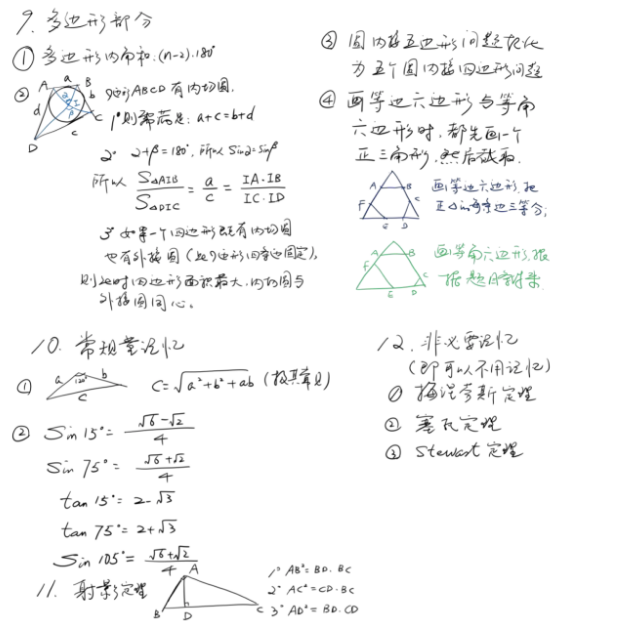 9. 多边形部分
① 多边形内角和:(n-2)·180°
② 四边形ABCD有内切圆.
A a B
d b
C
D c
1° 则需满足: a+c=b+d
2° α+β=180°, 所以 Sinα=Sinβ
所以 S△AIB/S△DIC = a/c = IA·IB/IC·ID
3° 如果一个四边形既有内切圆
也有外接圆(此四边形四条边固定),
则此时四边形面积最大,内切圆与
外接圆同心。
③ 圆内接五边形问题转化
为五个圆内接四边形问题
④ 画等边六边形与等角
六边形时,都先画一个
正三角形,然后截取.
A B
F C
E D
画等边六边形,把
正△的每条边三等分;
A B
F C
E D
画等角六边形,根
据题目需求
10. 常规量记忆
① a 120° b
c
C=√a²+b²+ab (极其常见)
② Sin 15°= √6-√2/4
Sin 75°= √6+√2/4
tan 15°= 2-√3
tan 75°= 2+√3
Sin 105°= √6+√2/4
11. 射影定理
A
B D C
1° AB²=BD·BC
2° AC²=CD·BC
3° AD²=BD·CD
12. 非必要记忆
(即可以不用记忆)
① 梅涅劳斯定理
② 塞瓦定理
③ Stewart定理